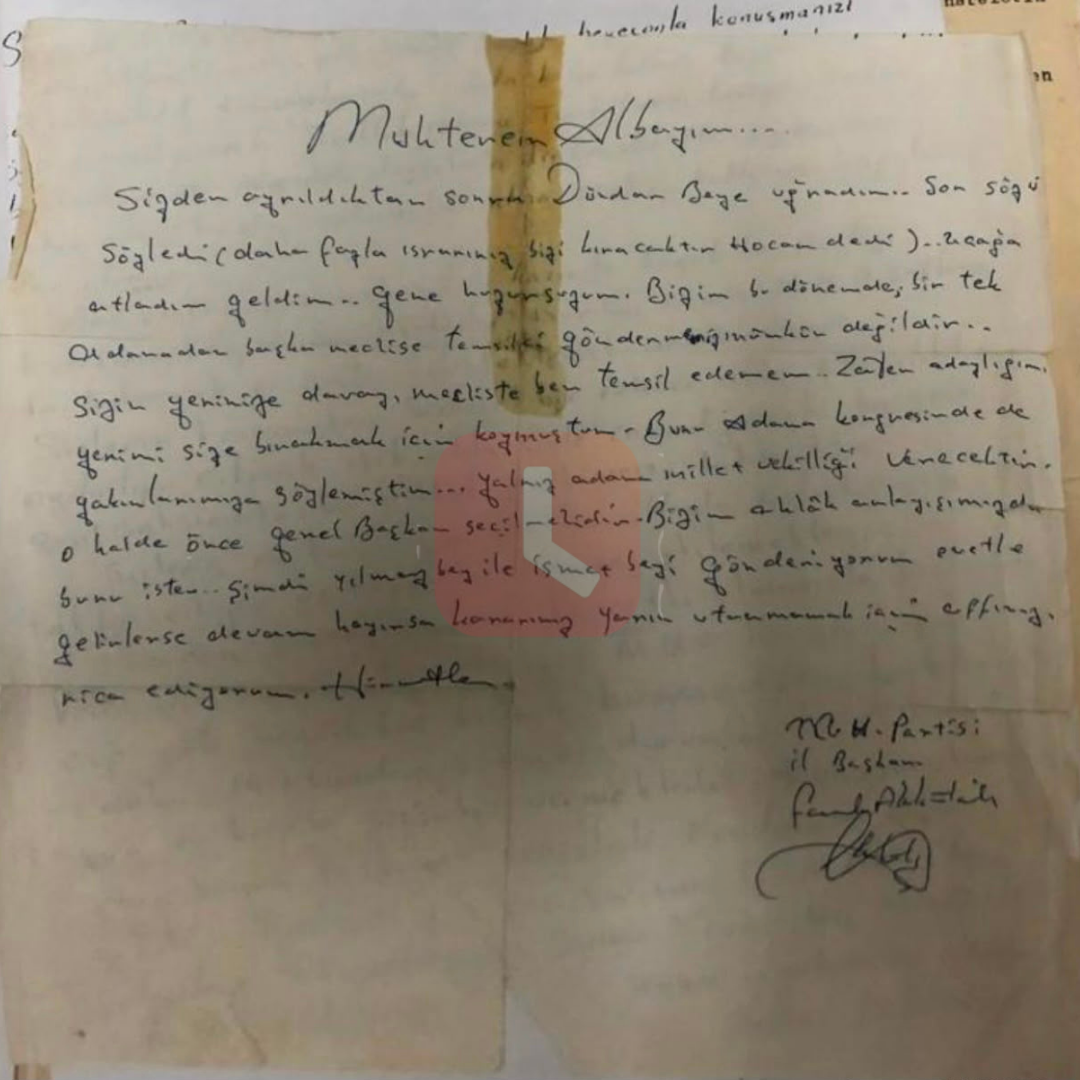 heyecanla konuşmanızı
Muhterem Albayım....
Sizden ayrıldıktan sonra Dündar Beye uğradım.. Son sözü
Söyledi (daha fazla ısrarınız bizi kıracaktır Hocam dedi)..Uçağa
atladım geldim.. gene huzursuzum. Bizim bu dönemde, bir tek
Adanadan başka meclise temsilci göndermemiz mümkün değildir..
Sizin yerinize davayı, mecliste ben temsil edemem.. Zaten adaylığımı,
yerimi size bırakmak için koymuştum. Bunu Adana kongresinde de
yakınlarımıza söylemiştim... yalnız adana millet vekilliği verecektir.
o halde önce genel Başkan seçilmelidir. Bizim ahlâk anlayışımızda
bunu ister.. Şimdi yılmaz bey ile ismet beyi gönderiyorum evetle
gelirlerse devam hayırsa kararınız yarın utanmamak için affınızı,
rica ediyorum. Hürmetler.
M. H. Partisi
il Başkanı